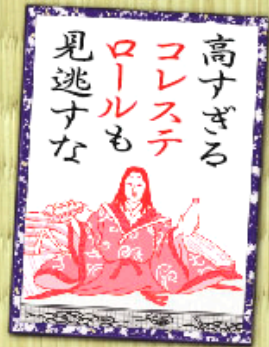 高すぎる
コレステ
ロールも
見逃すな